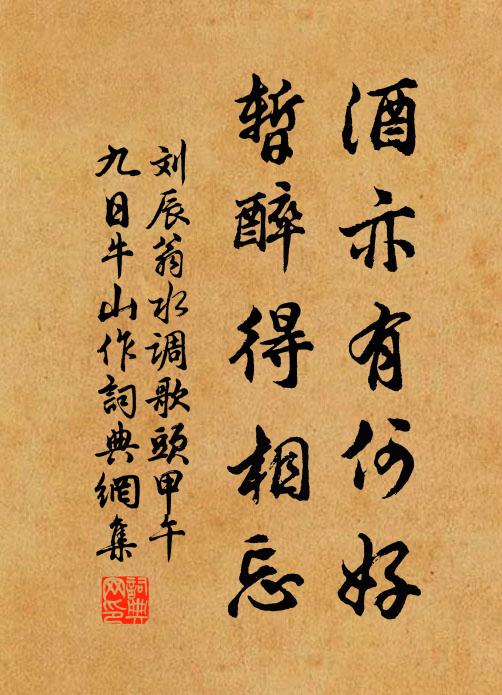 酒亦有何好
暫醉得相忘
刘辰翁水调歌頭甲午
九日牛山作詞典網集
詞典网印